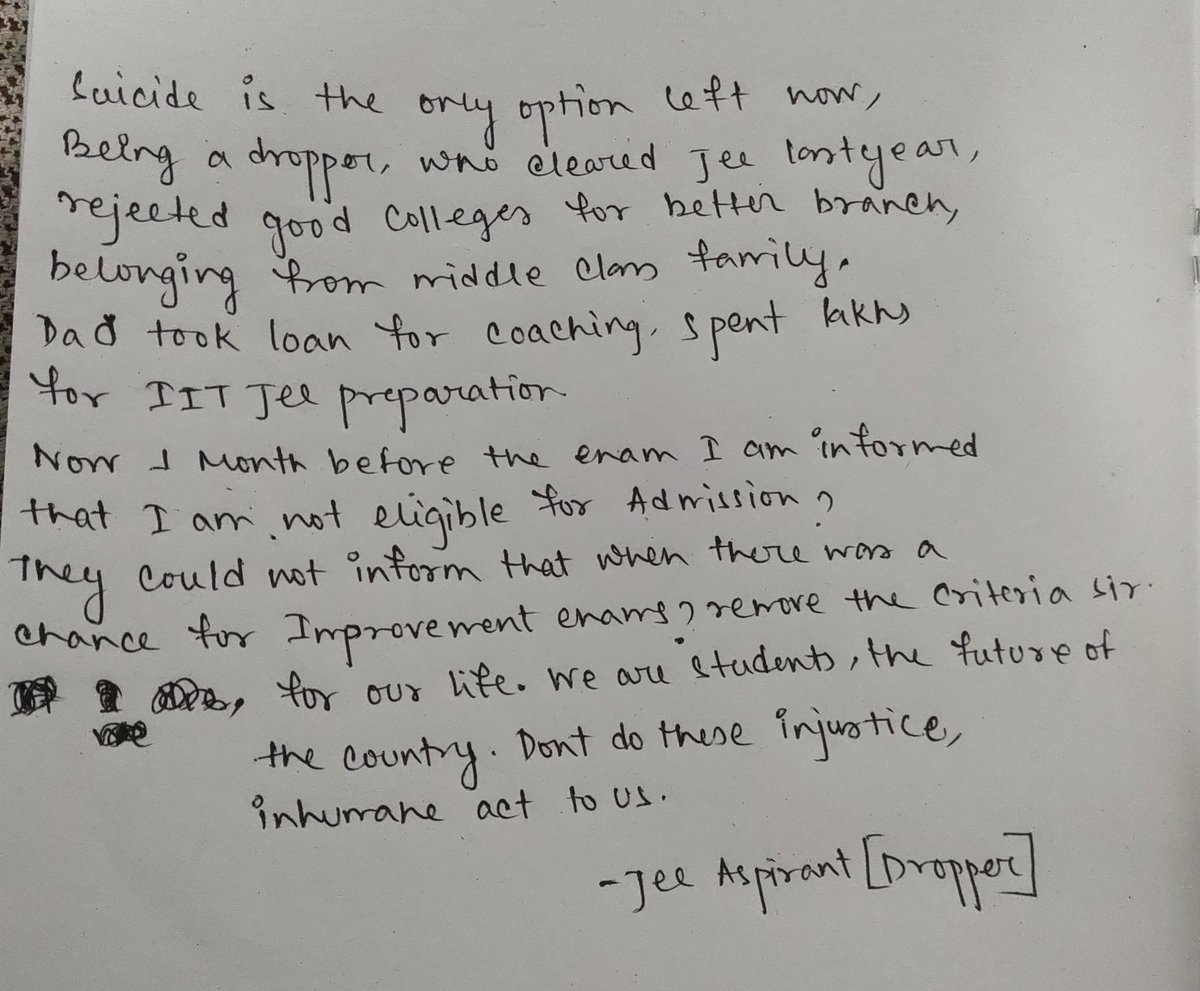 Suicide is the only option left now,
Being a dropper, who cleared Jee lastyear,
rejected good colleges for better branch,
belonging from middle class family.
Dad took loan for coaching, spent lakhs
for IIT Jee preparation
Now 1 Month before the exam I am informed
that I am not eligible for Admission?
They could not inform that when there was a
chance for Improvement exams? remove the criteria sir.
for our life. We are students, the future of
the country. Dont do these injustice,
inhumane act to us.
- Jee Aspirant [Dropper]